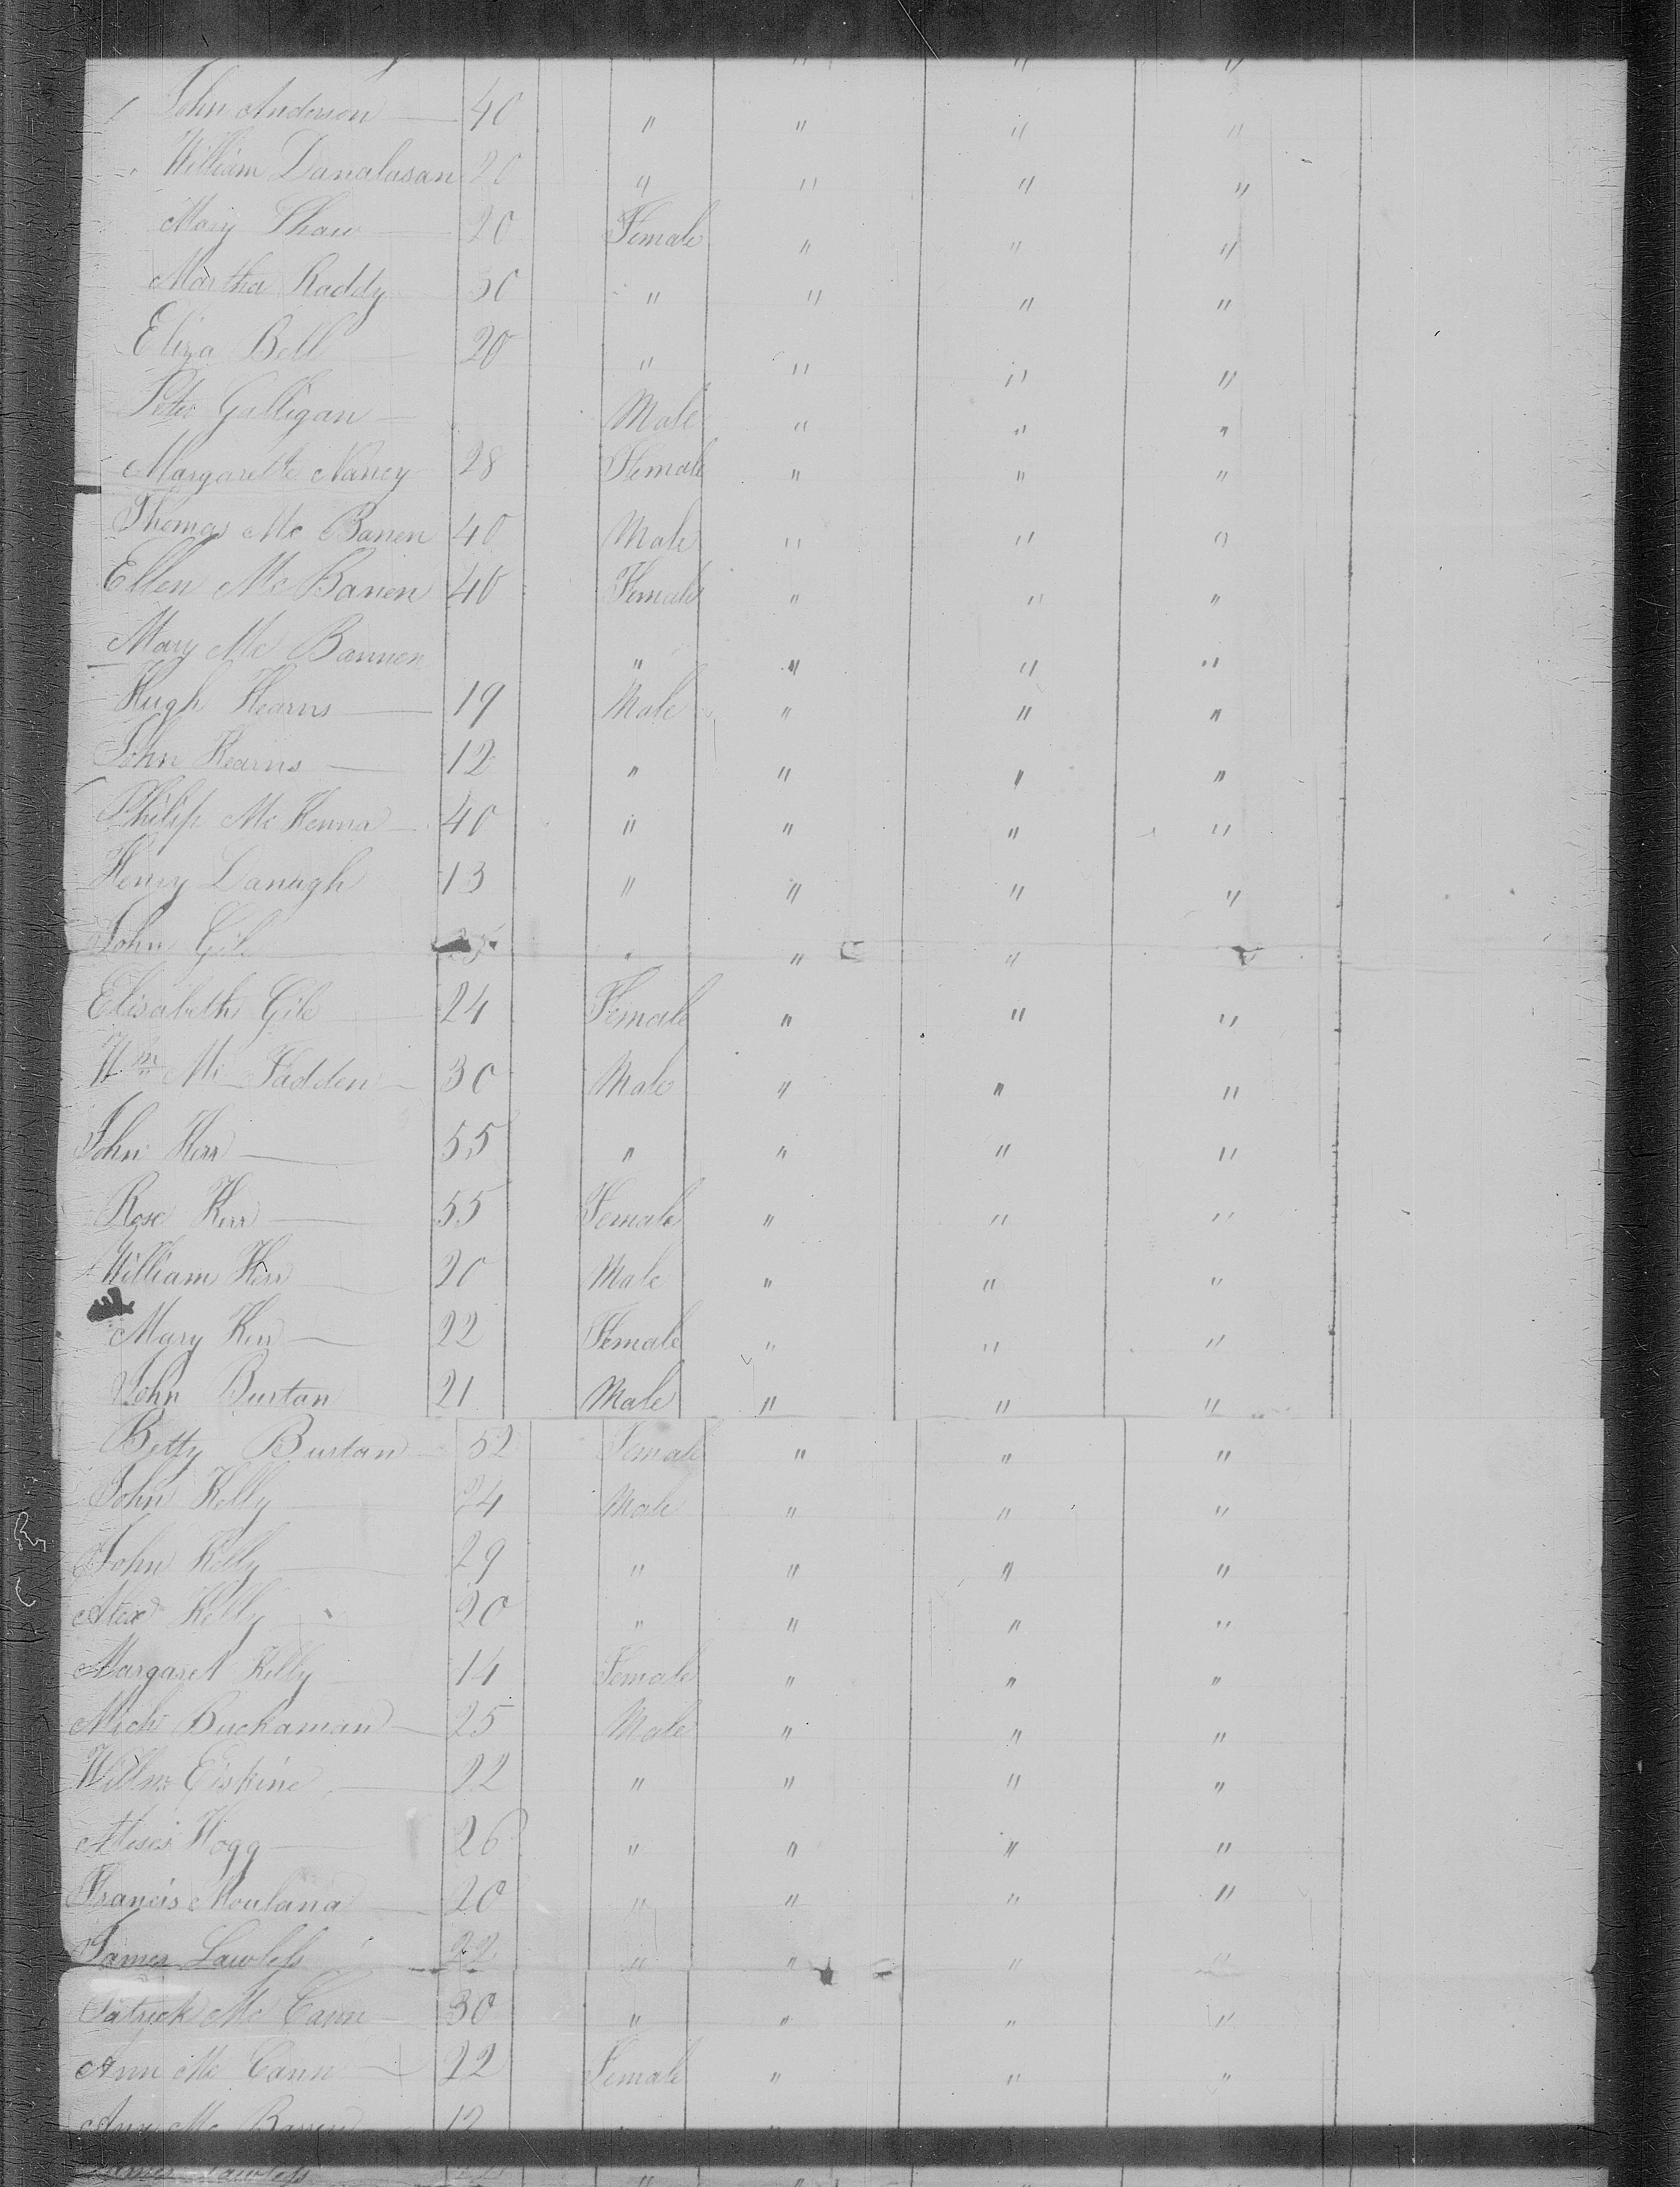 " " "
John Anderson 40 " " " "
William Danalasan 20 " " " "
Mary Shaw 20 Female " " "
Martha Raddy 30 " " " "
Eliza Bell 20 " " " "
Peter Galligan Male " " "
Margarette Nancy 28 Female " " "
Thomas Mc Banen 40 Male " " "
Ellen Mc Banen 40 Female " " "
Mary Mc Bannen " " " "
Hugh Kearns 19 Male " " "
John Kearns 12 " " " "
Philip Mc Kenna 40 " " " "
Henry Danagh 13 " " " "
John Gile " " " "
Elisabeth Gile 24 Female " " "
Wm Mc Fadden 30 Male " " "
John Kerr 55 " " " "
Rose Kerr 55 Female " " "
William Kerr 20 Male " " "
Mary Kerr 22 Female " " "
John Burtan 21 Male " " "
Betty Burtan 52 Female " " "
John Kelly 24 Male " " "
John Kelly 29 " " " "
Alexr Kelly 20 " " " "
Margaret Kelly 14 Female " " "
Michl Buchaman 25 Male " " "
Willm Erskine 22 " " " "
Hogg 26 " " " "
Francis Moulana 20 " " " "
James Lawless 22 " " " "
Patrick Mc Cann 30 " " " "
Ann Mc Cann 22 Female " " "
Ann Mc 12
James Lawless " "